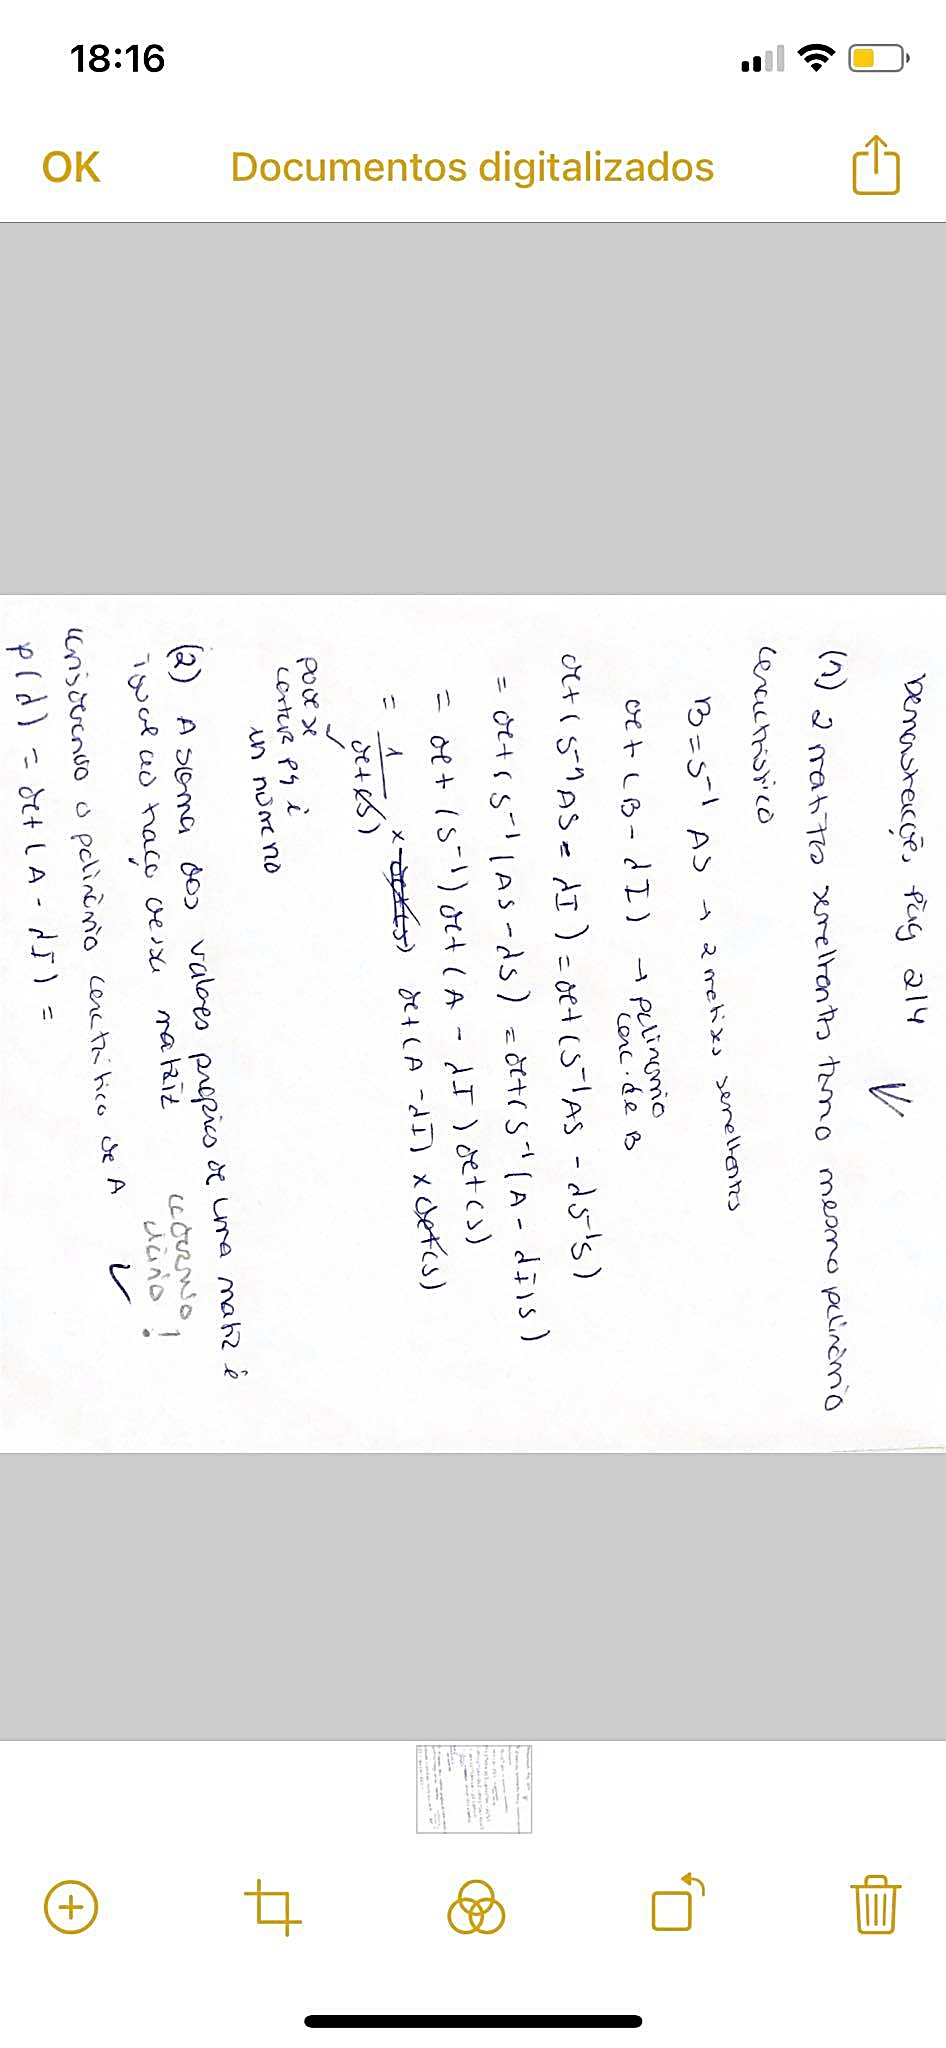 18:16
OK
Documentos digitalizados
Demonstração, pág 214
(1) 2 matrizes semelhantes têm o mesmo polinómio
característico
B = S⁻¹ AS → 2 matrizes semelhantes
det (B - λI) → polinómio
carc. de B
det (S⁻¹ AS = λI) = det (S⁻¹AS - λS⁻¹S)
= det (S⁻¹(AS - λS) = det (S⁻¹(A - λI)S)
= det (S⁻¹) det (A - λI) det (S)
= 1/det(S) × det(S) det (A - λI) × det(S)
pode se
cortar pq é
um número
(2) A soma dos valores próprios de uma matriz é
igual ao traço dessa matriz
caderno
diário!
considerando o polinómio caractrístico de A
p(λ) = det (A - λI) =